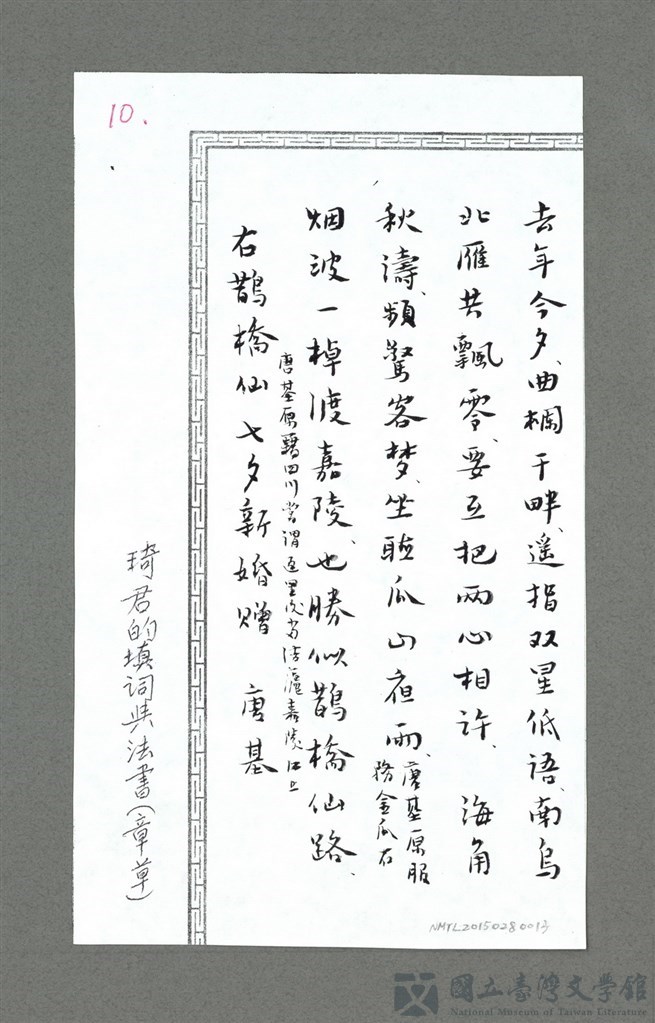 10.
去年今夕、曲欄干畔、遙指双星低語、南烏
北雁共飄零、要互把兩心相許、 海角
秋濤、頻驚客梦、坐聽瓜山夜雨、唐基原服
務金瓜石
烟波一棹渡嘉陵、也勝似鵲橋仙路、
唐基原籍四川嘗謂返里後當結廬嘉陵江上
右鵲橋仙七夕新婚贈 唐基
琦君的填詞與法書(章草)
NMTL20150280013
國立臺灣文學館
National Museum of Taiwan Literature